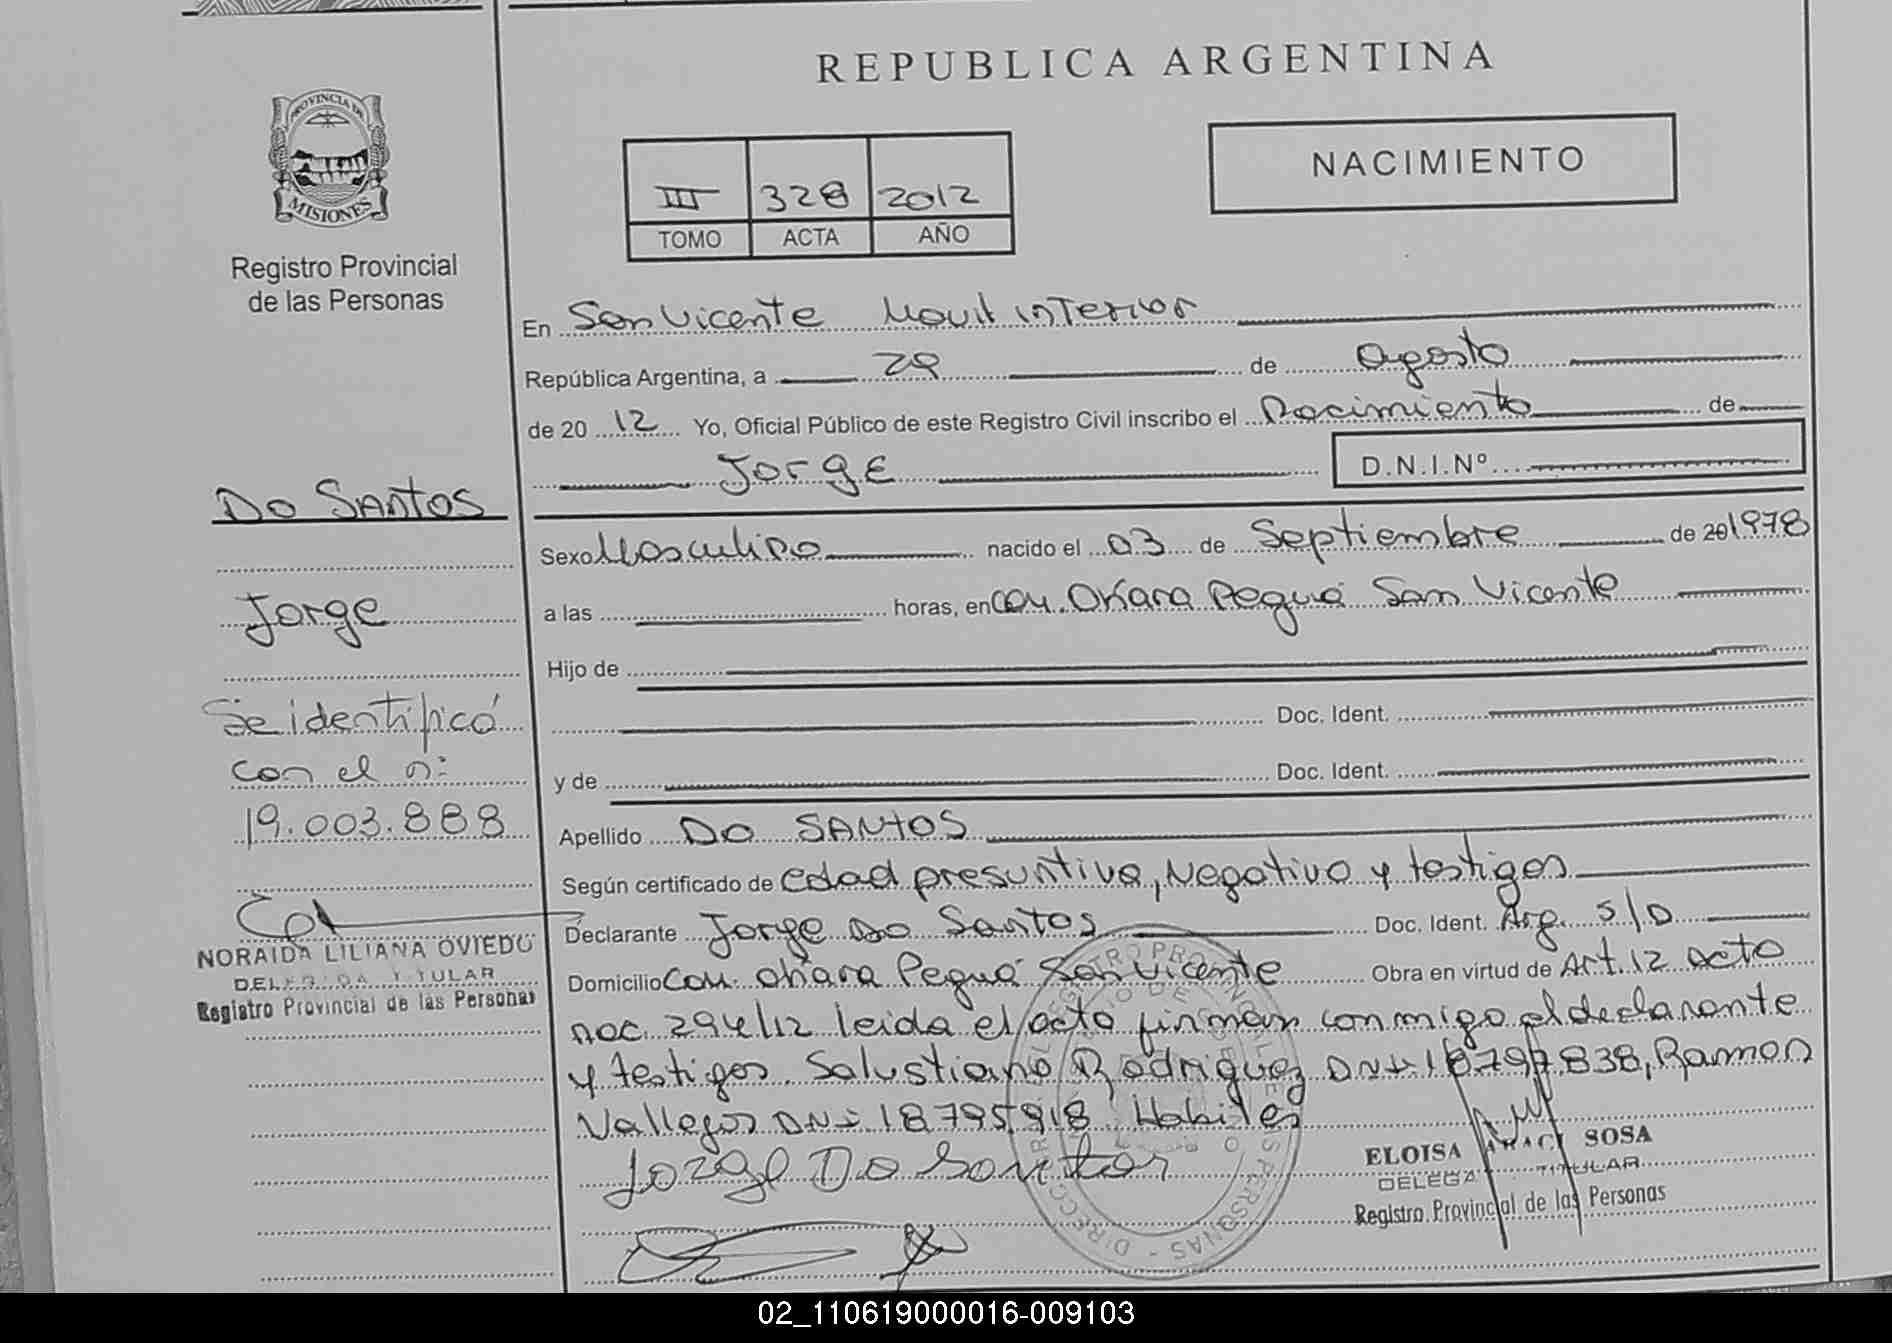 REPUBLICA ARGENTINA
PROVINCIA DE
MISIONES
Registro Provincial
de las Personas
III 328 2012
TOMO ACTA AÑO
NACIMIENTO
En San Vicente Movil interior
República Argentina, a 29 de Agosto
de 20 12 Yo, Oficial Público de este Registro Civil inscribo el Nacimiento de
Jorge D.N.I.Nº
Do Santos
Jorge
Se identificó
con el nº
19.003.888
NORAIDA LILIANA OVIEDO
DELEGADA TITULAR
Registro Provincial de las Personas
Sexo Masculino nacido el 03 de Septiembre de 20 1978
a las horas, en Col. Oñara Peguá San Vicente
Hijo de
Doc. Ident.
y de Doc. Ident.
Apellido Do SANTOS
Según certificado de edad presuntiva, Negativo y testigos
Declarante Jorge Do Santos Doc. Ident. Arg. S/D
Domicilio Col. Oñara Peguá San Vicente Obra en virtud de Art. 12 acto
nac. 294/12 leida el acto firman conmigo el declarante
y testigos. Salustiano Rodriguez DNI 18797838, Ramon
Vallejos DNI 18795918 Habiles
Jorge Do Santos
ELOISA SOSA
DELEGA TITULAR
Registro Provincial de las Personas
02_110619000016-009103